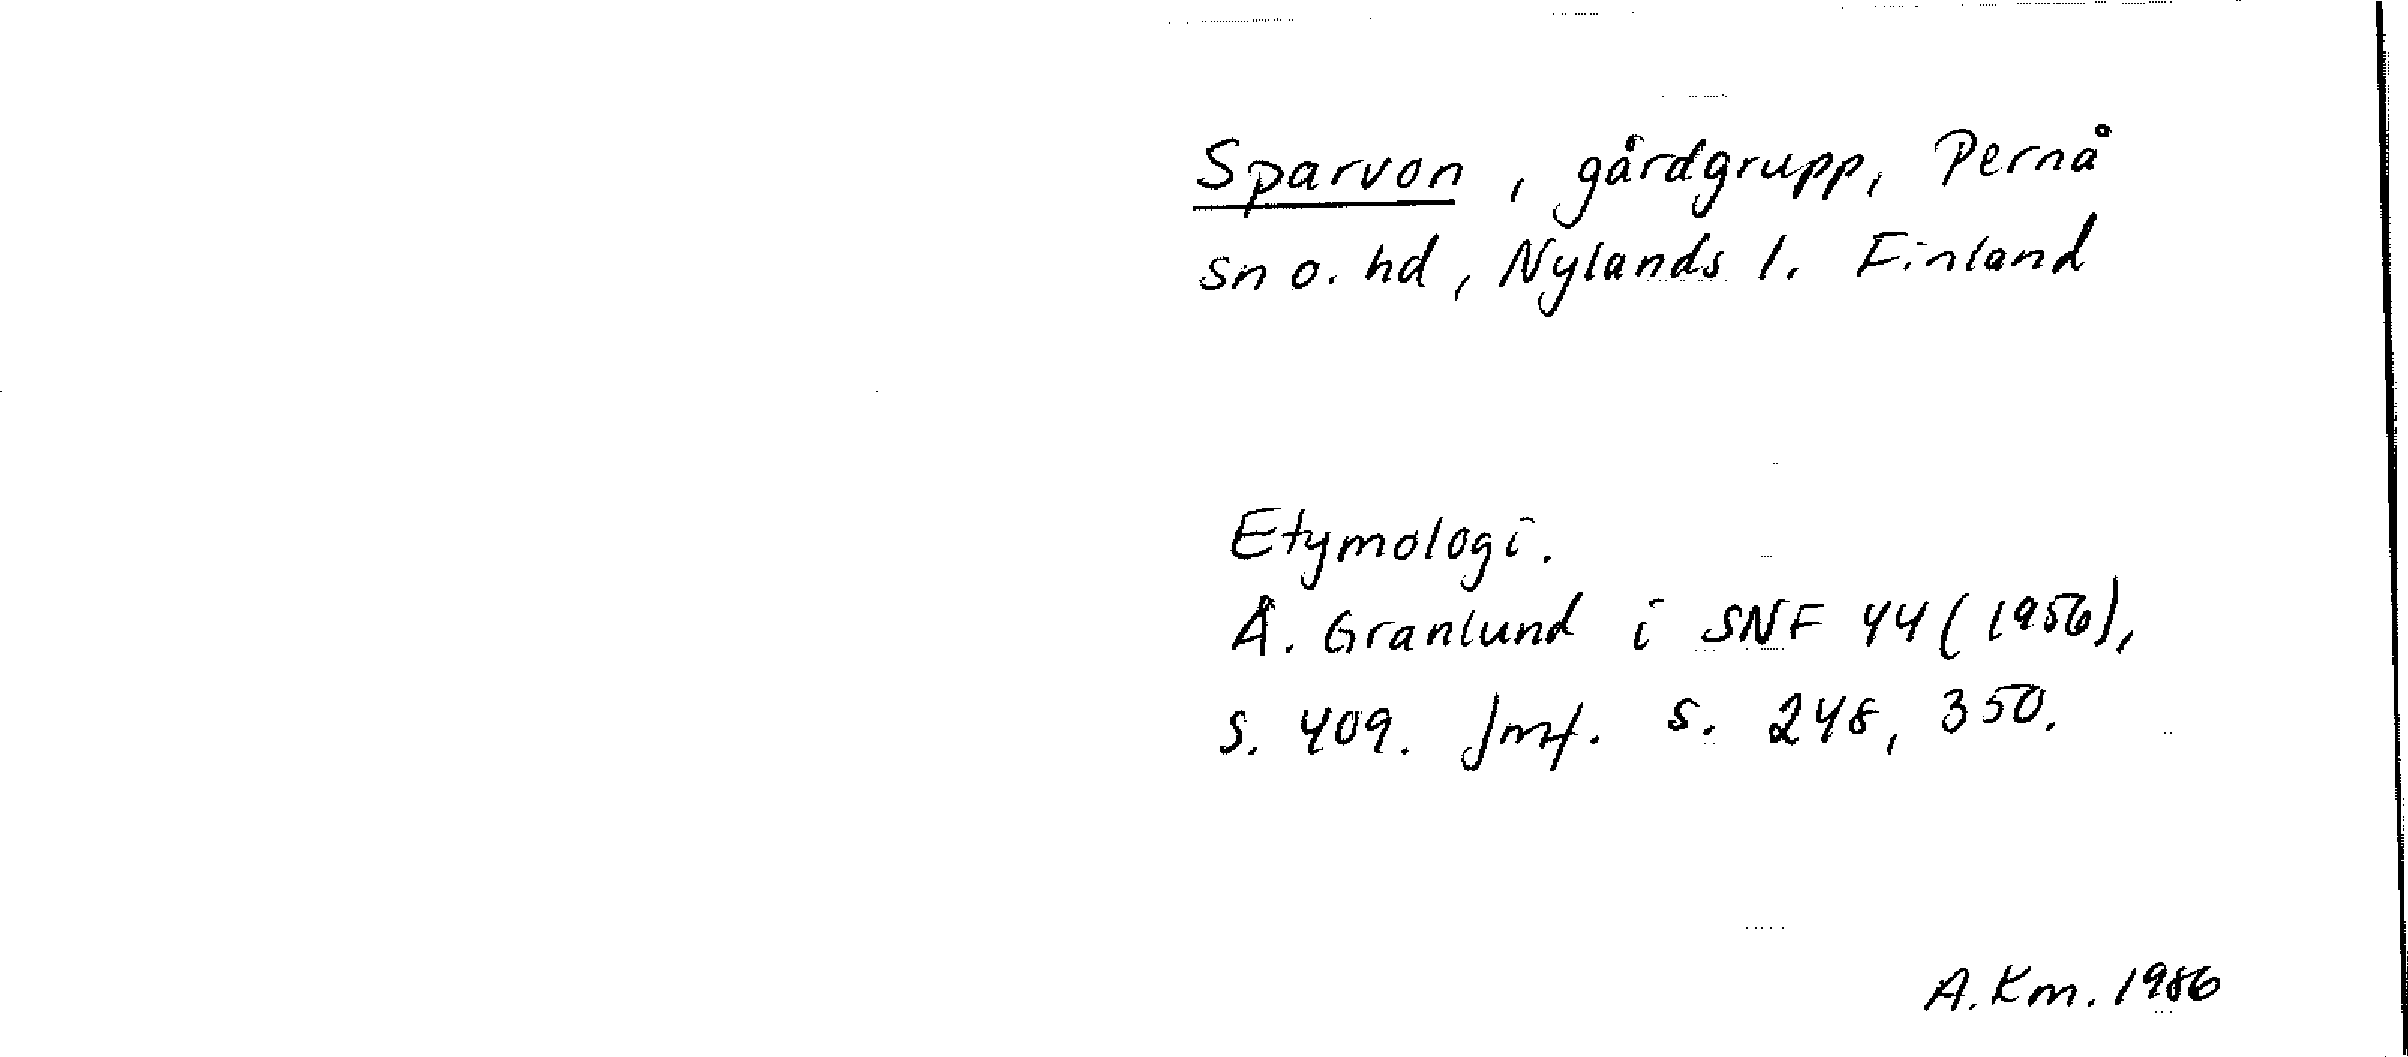 Sparvon, gårdgrupp, Pernå
sn o. hd, Nylands l. Finland
Etymologi.
Å. Granlund i SNF 44 (1956),
s. 409. Jmf. s. 248, 350.
A. Km. 1986